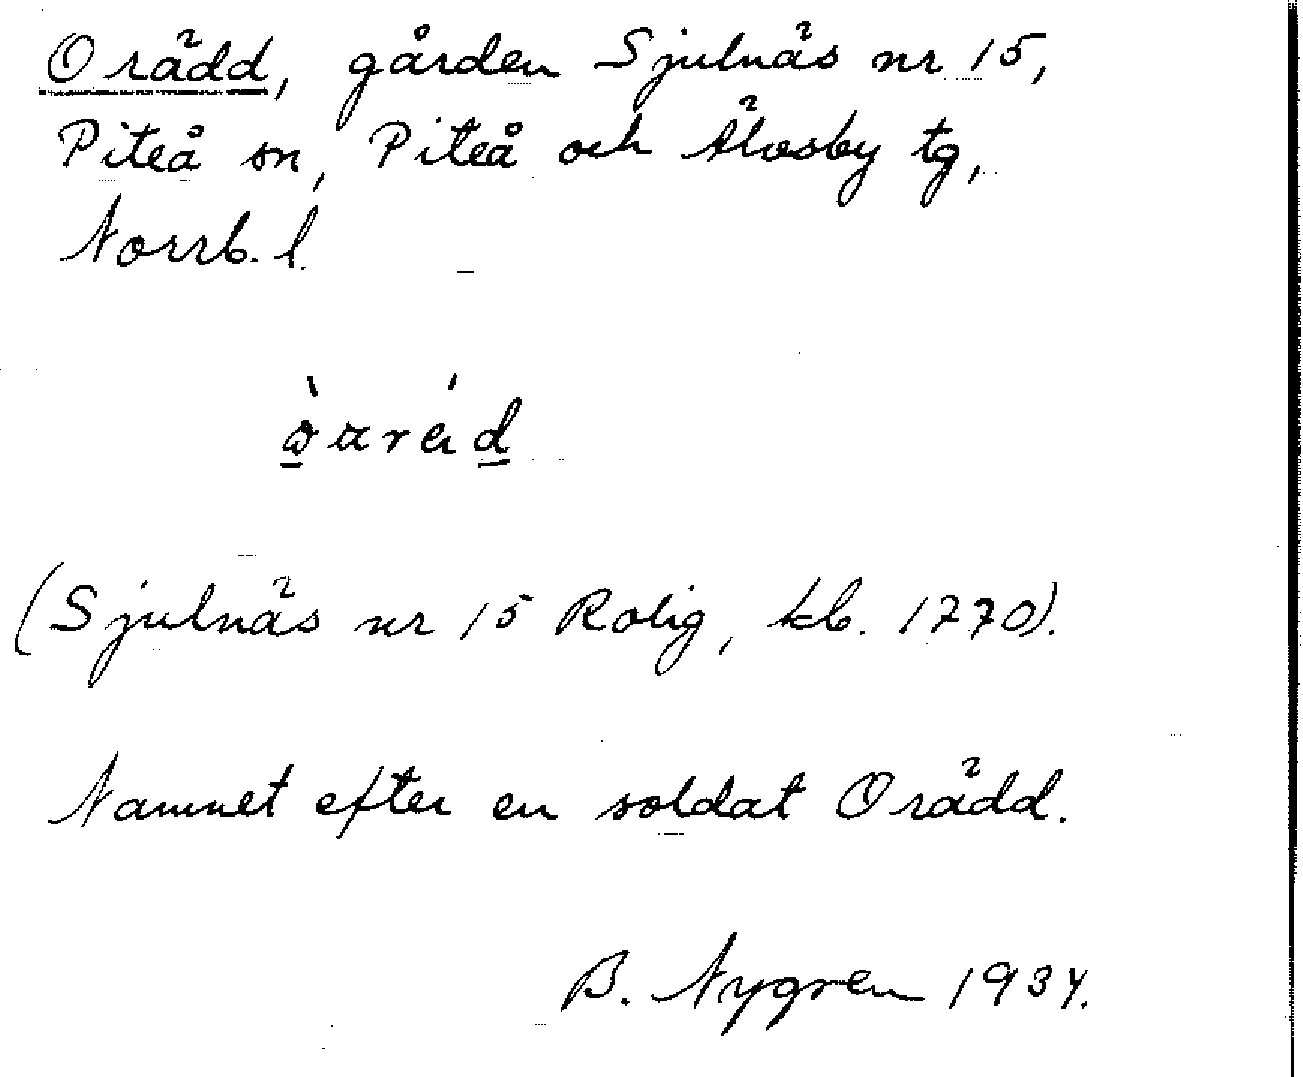 Orädd, gården Sjulnäs nr 15,
Piteå sn, Piteå och Älvsby tg,
Norrb. l.
(Sjulnäs nr 15 Rolig, kb. 1770).
Namnet efter en soldat Orädd.
B. Nygren 1934.